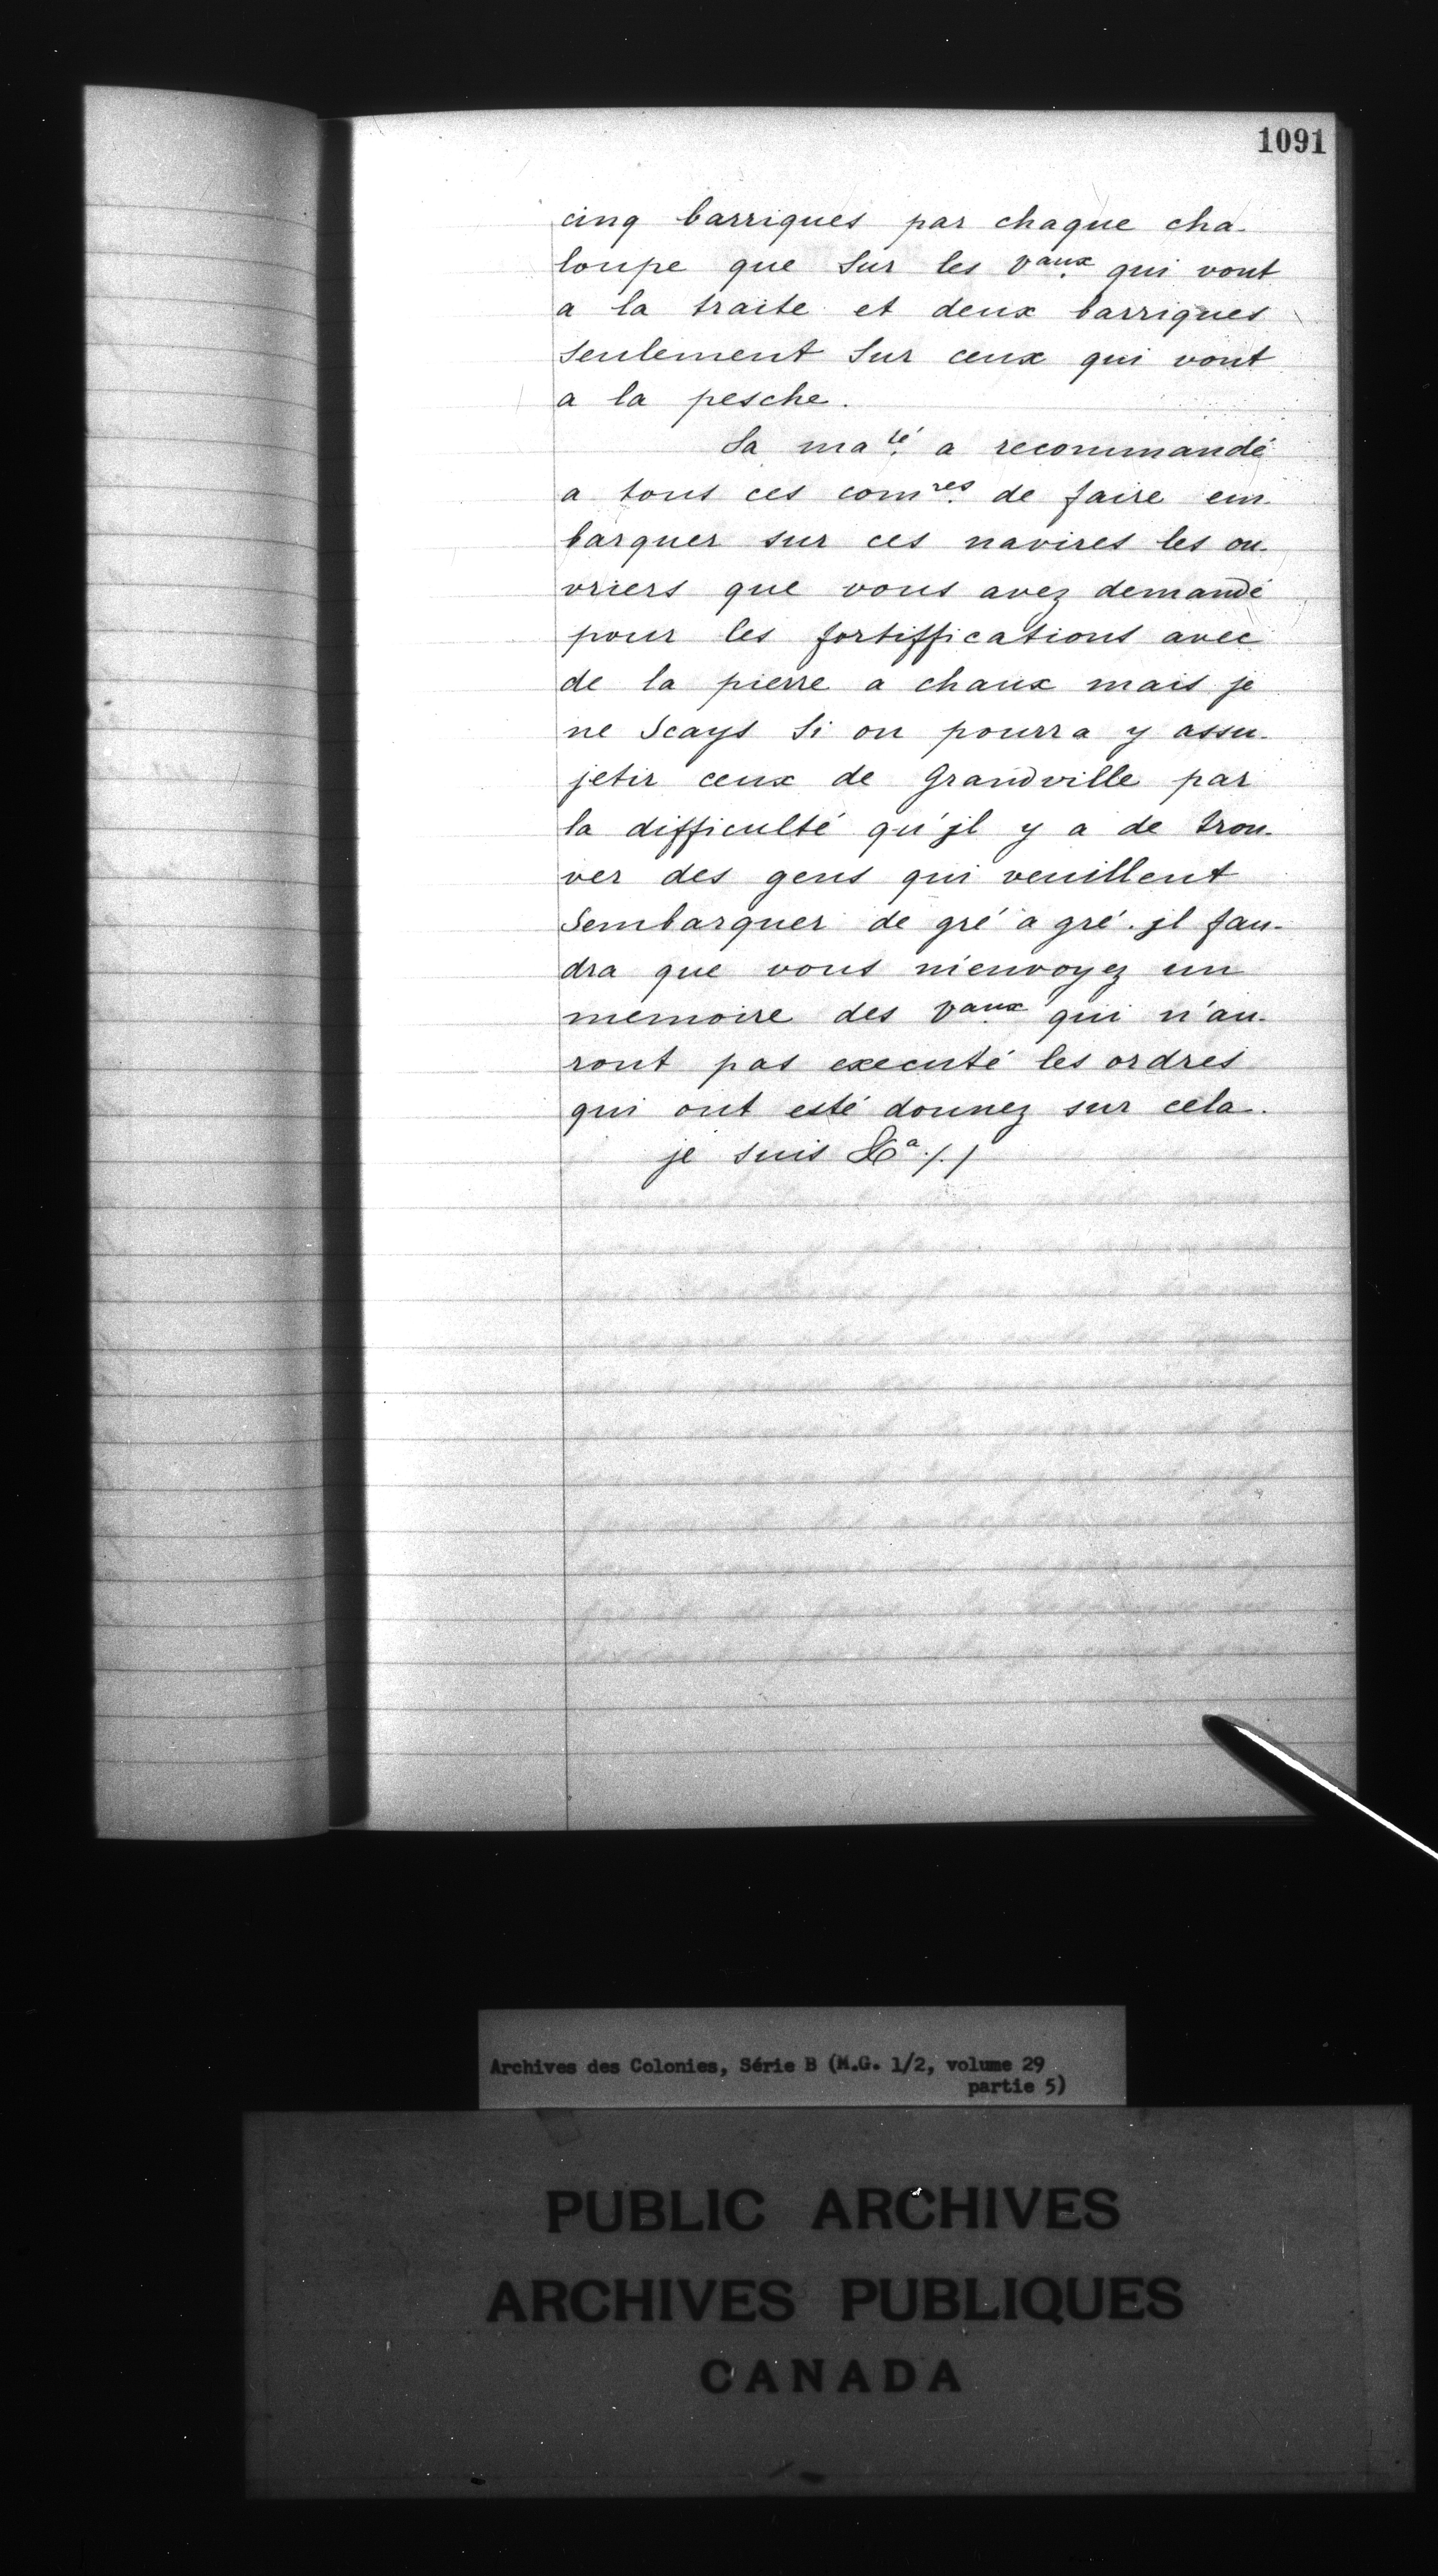 1091
cinq barriques par chaque cha-
loupe que sur les Vaux. qui vont
a la traite et deux barriques
seulement sur ceux qui vont
a la pesche.
Sa maté. a recommandé
a tous ces comres. de faire em-
barquer sur ces navires les ou-
vriers que vous avez demandé
pour les fortiffications avec
de la pierre a chaux mais je
ne Scays Si on pourra y assu-
jetir ceux de Grandville par
la difficulté qu'jl y a de trou-
ver des gens qui veuillent
Sembarquer de gré a gré. jl fau-
dra que vous m'envoyez un
memoire des Vaux. qui n'au-
ront pas executé les ordres
qui ont esté donnez sur cela.
je suis &a ./.
Archives des Colonies, Série B (M.G. 1/2, volume 29
partie 5)
PUBLIC ARCHIVES
ARCHIVES PUBLIQUES
CANADA